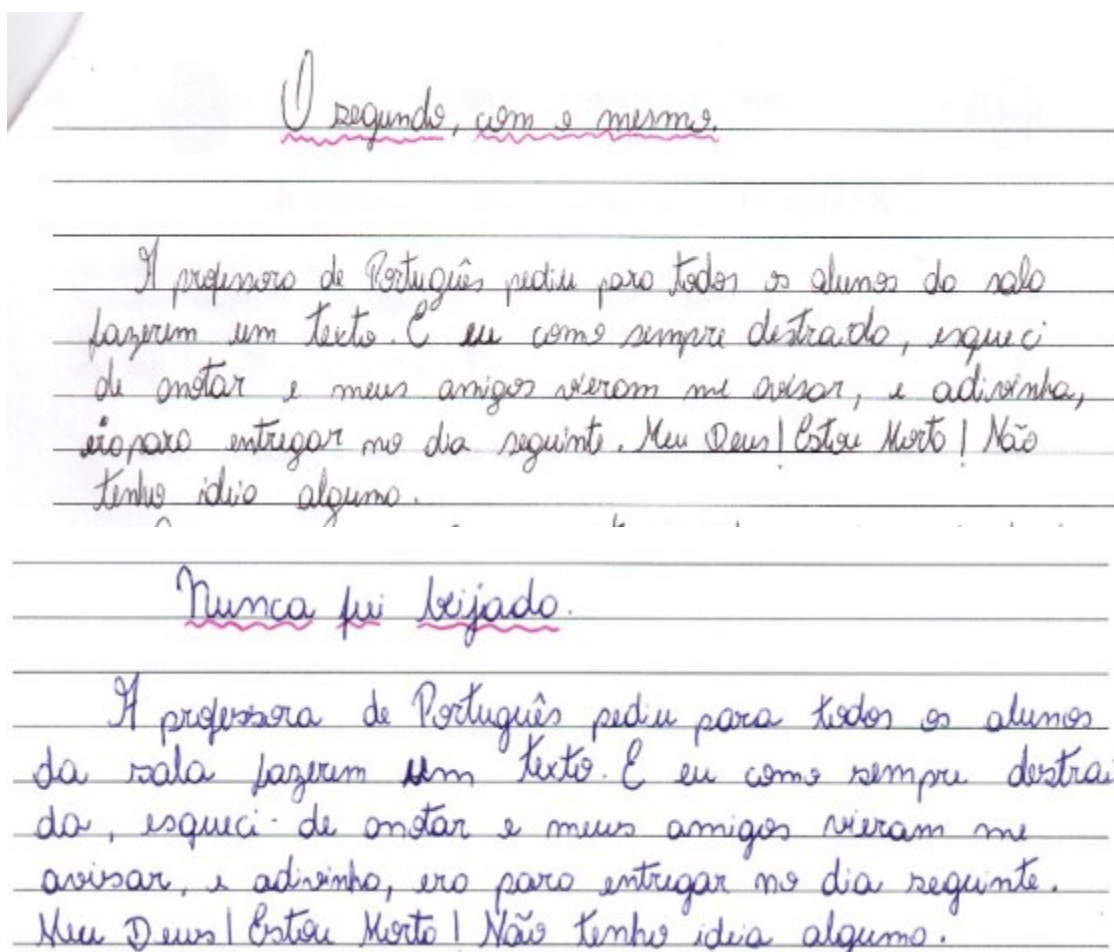 O segundo, com o mesmo.
A professora de Português pediu para todos os alunos da sala
fazerem um texto. E eu como sempre destraido, esqueci
de anotar e meus amigos vieram me avisar, e adivinha,
era para entregar no dia seguinte. Meu Deus! Estou Morto! Não
tenho ideia alguma.
Nunca fui beijado.
A professora de Português pediu para todos os alunos
da sala fazerem um texto. E eu como sempre destrai
do, esqueci de anotar e meus amigos vieram me
avisar, e adivinha, era para entregar no dia seguinte.
Meu Deus! Estou Morto! Não tenho ideia alguma.